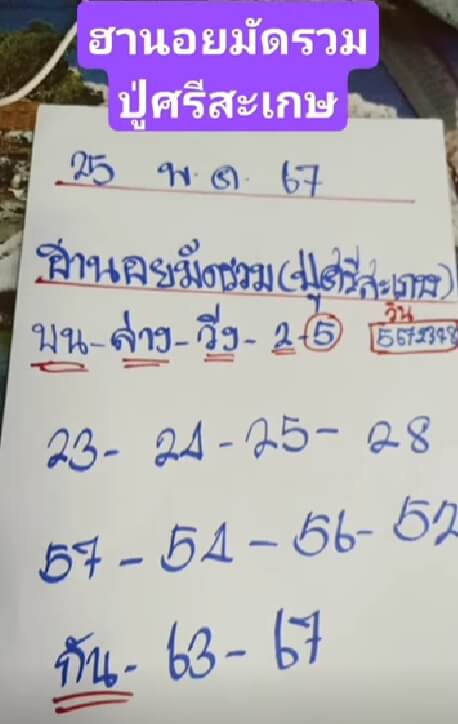 ฮานอยมัดรวม
ปู่ศรีสะเกษ
25 พ.ค. 67
ฮานอยมัดรวม(ปู่ศรีสะเกษ)
บน-ล่าง-วิ่ง-2-5
วิน
23-24-25-28
57-54-56-52
กัน-63-67